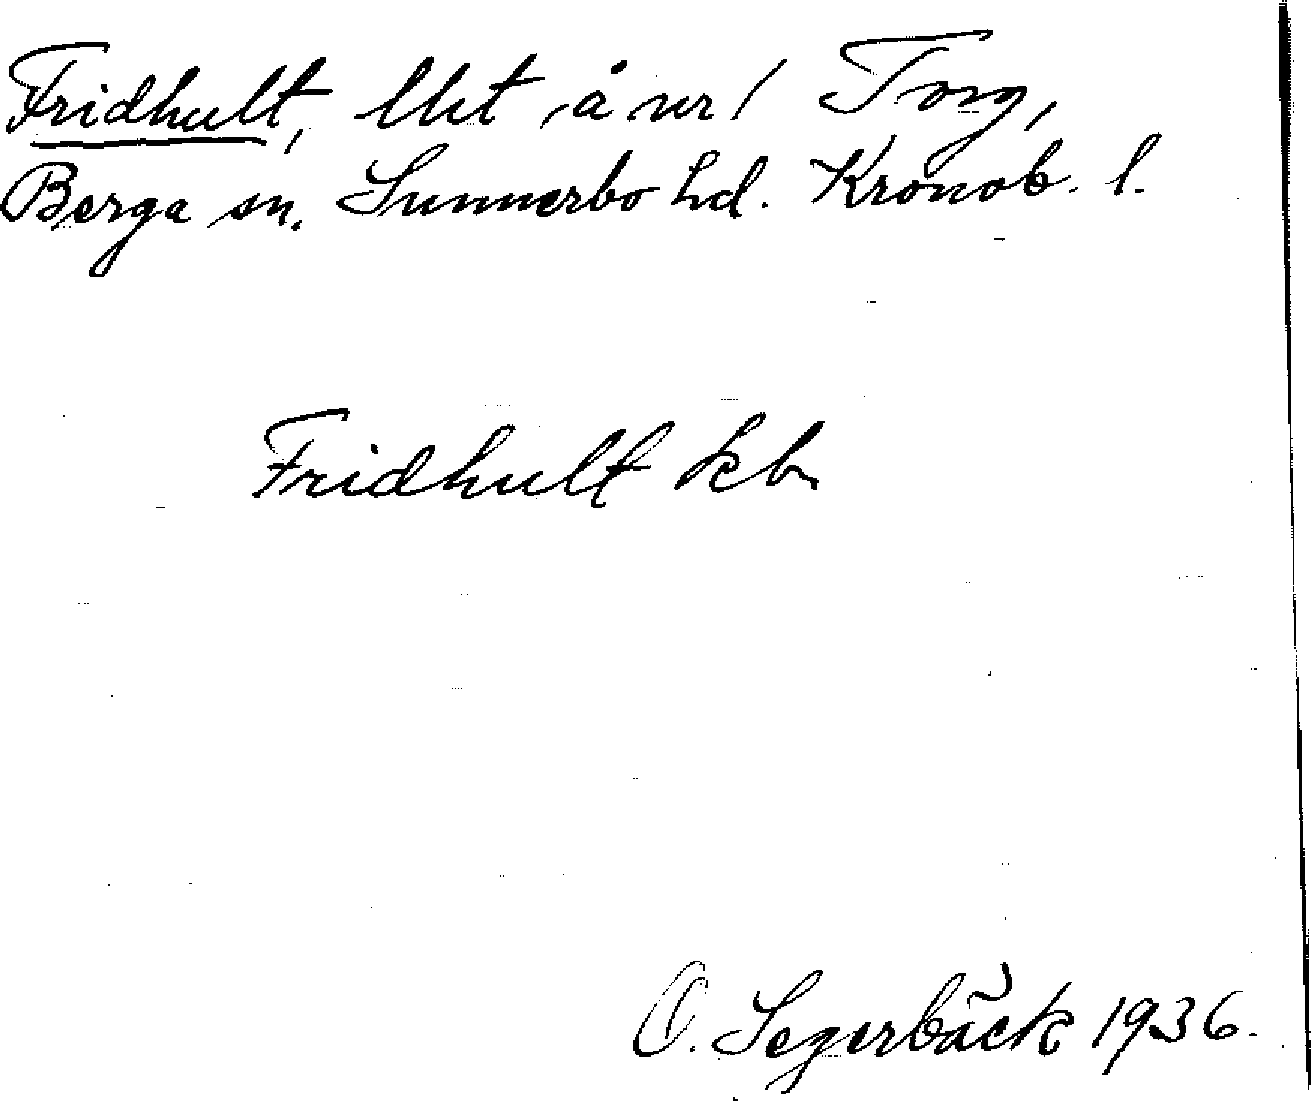 Fridhult, lht å nr 1 Torg,
Berga sn. Sunnerbo hd. Kronob. l.
Fridhult kb.
O. Segerbäck 1936.